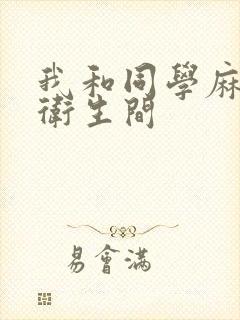 我和同學麻
衛生間
易會滿